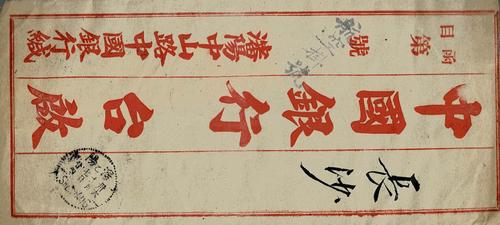 長沙
中國銀行 台啟
函目第 號
瀋陽中山路中國銀行緘